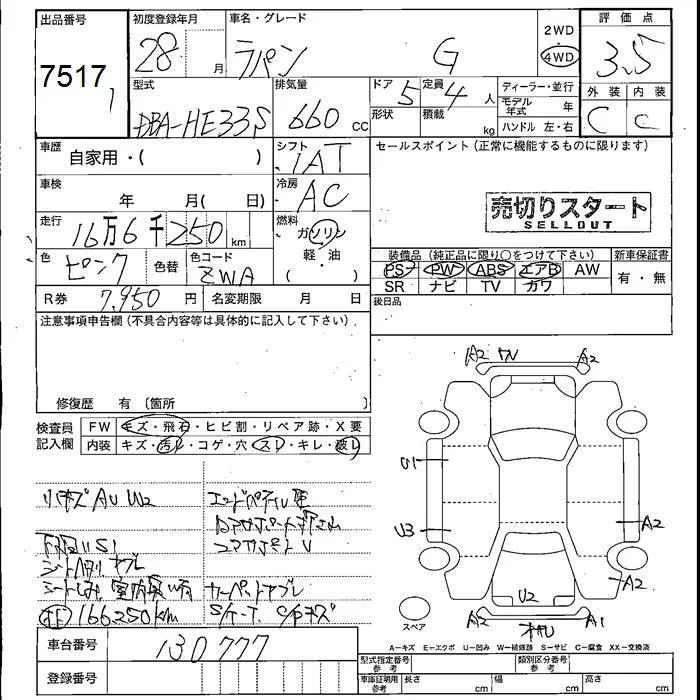 出品番号 初度登録年月 車名・グレード 2WD 評価点
7517 28 月 ラパン G 4WD 3.5
型式 排気量 ドア 定員 ディーラー・並行 外装 内装
DBA-HE33S 660 CC 5 4 人 モデル年式 年 C C
形状 積載 kg ハンドル 左・右
車歴 自家用・( ) シフト IAT セールスポイント(正常に機能するものに限ります)
車検 年 月( 日) 冷房 AC
売切りスタート
SELLOUT
走行 16万6千250 km 燃料 ガソリン
軽・油
( )
色 ピンク 色替 色コード ZWA
装備品(純正品に限り○をつけて下さい) 新車保証書
PS PW ABS エアB AW 有・無
SR ナビ TV カワ
R券 7,950 円 名変期限 月 日 後日品
注意事項申告欄(不具合内容等は具体的に記入して下さい)
修復歴 有(箇所 )
検査員 FW キズ・飛石・ヒビ割・リペア跡・X要
記入欄 内装 キズ・汚れ・コゲ・穴・スレ・キレ・破れ
A2 A2
U1
U3 A2
A2
U2
A2 A1
スペア
リキズ AU W2
S1
166,250km
車台番号 130777
登録番号
A=キズ E=エクボ U=凹み W=補修跡 S=サビ C=腐食 XX=交換済
型式指定番号 参考 類別区分番号 参考
車庫証明用 参考 長さ cm 幅 cm 高さ cm